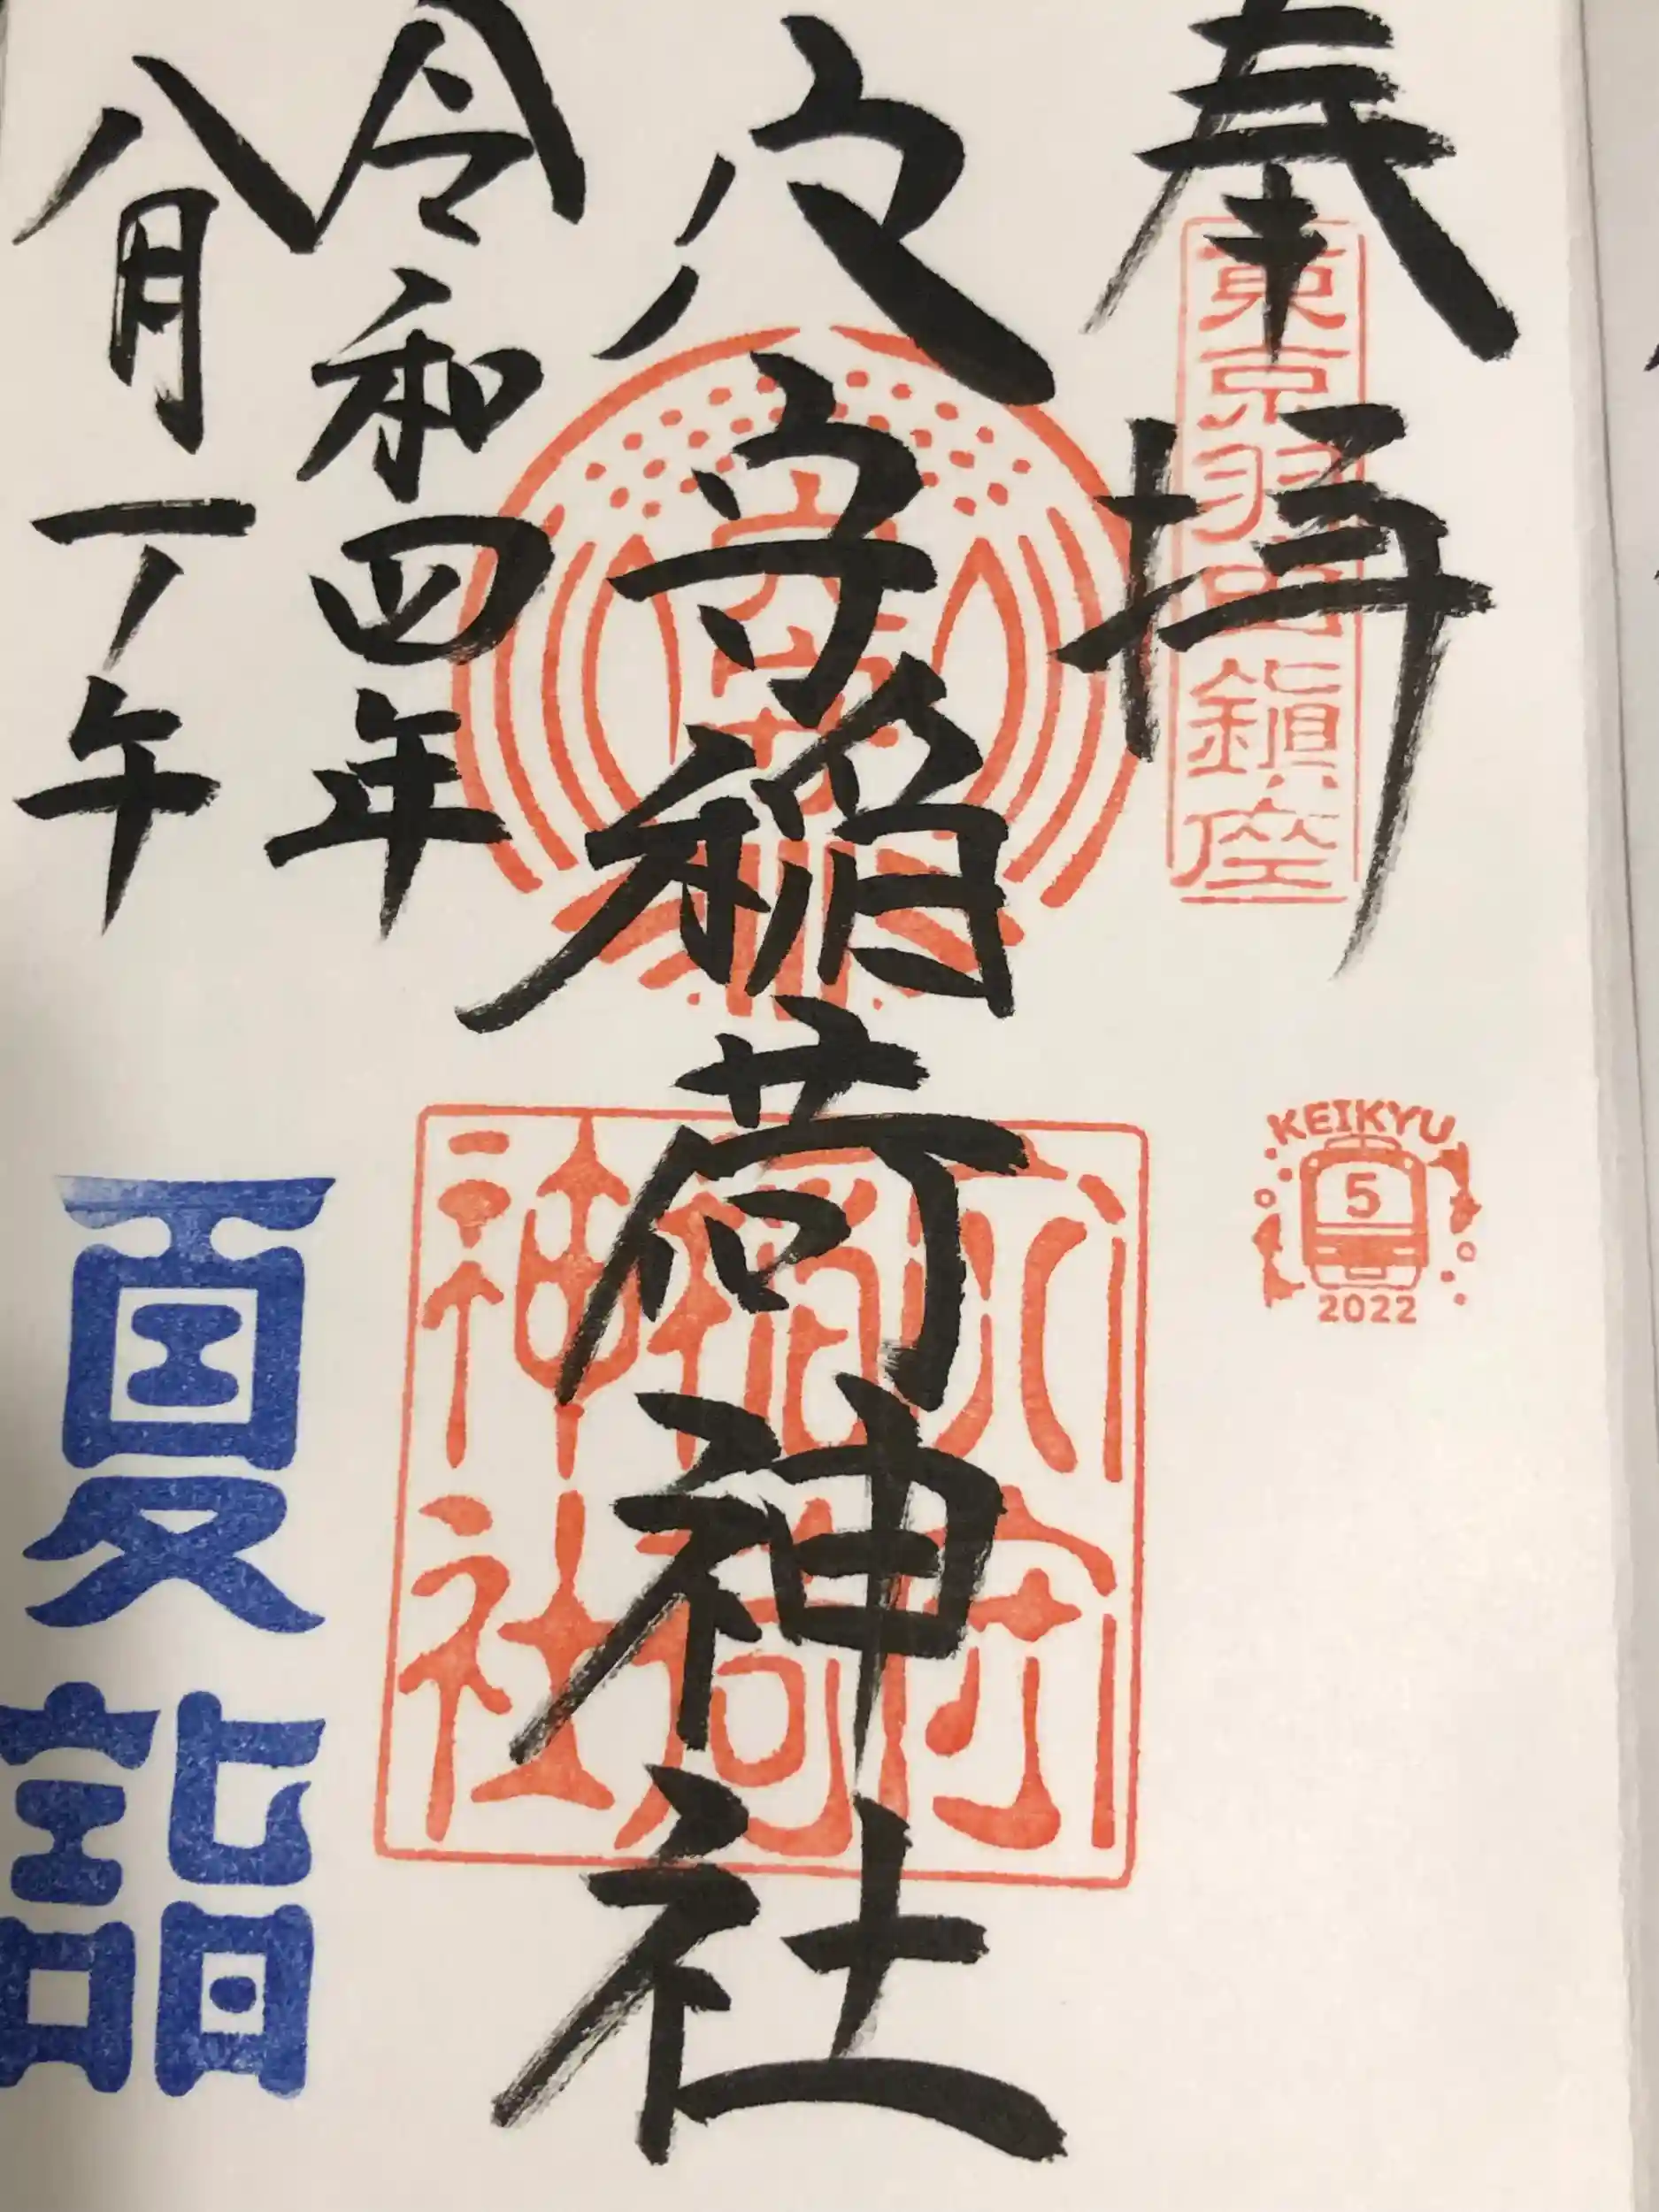 奉拝
東京羽田鎭座
KEIKYU
5
2022
穴守稲荷神社
穴守
稲荷
神社
令和四年
八月一ノ午
夏詣